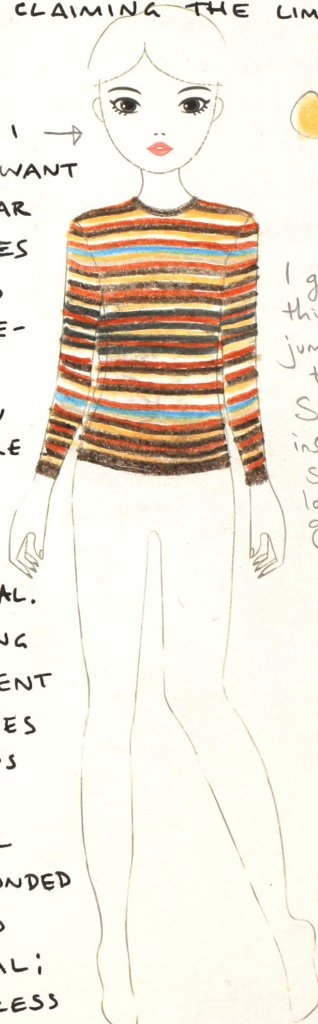 CLAIMING THE LIM
I →
WANT
AR
ES
E-
RE
AL.
NG
ENT
ES
DS
L
ONDED
D
AL;
LESS
I g
thi
jum
t
S
ins
s
lo
g